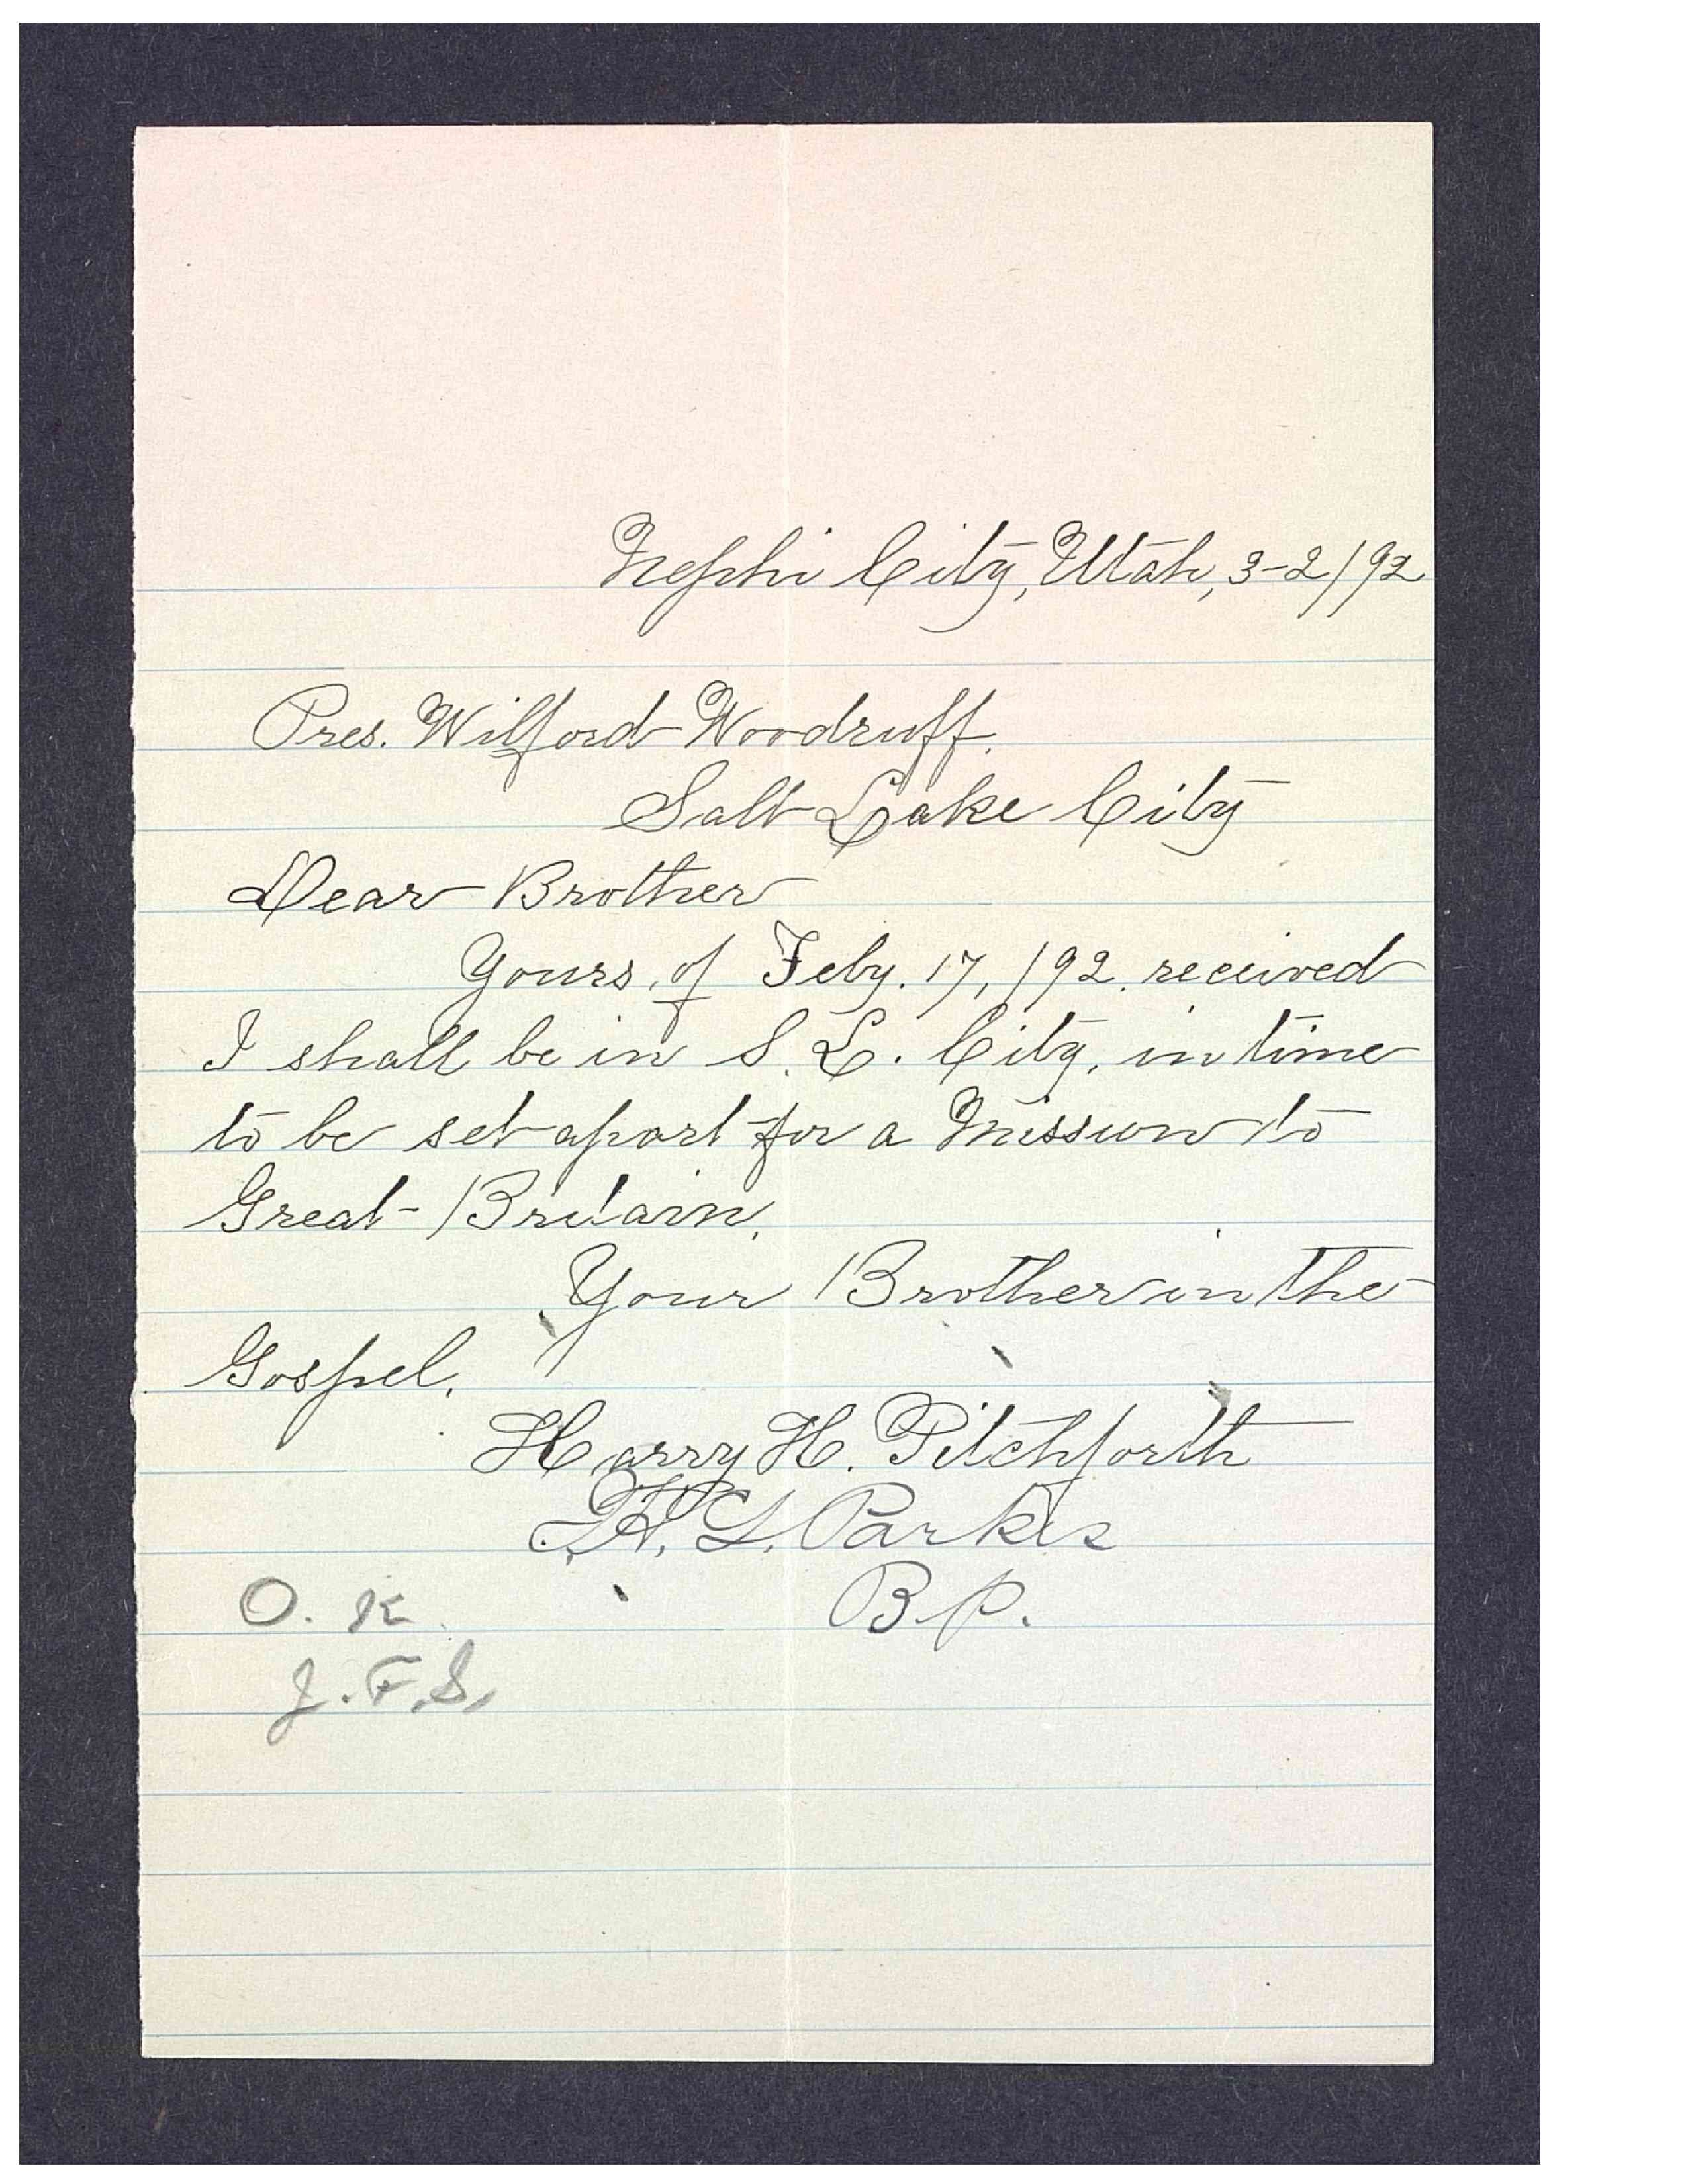 Nephi City, Utah, 3-2/92
Pres. Wilford Woodruff.
Salt Lake City
Dear Brother
Yours, of Feby. 17, /92. received
I shall be in S. L. City, in time
to be set apart for a Mission to
Great-Britain.
Your Brother in the
Gospel.
Harry H. Pitchforth
W. L. Parkes
B.P.
O. K.
J. F. S.